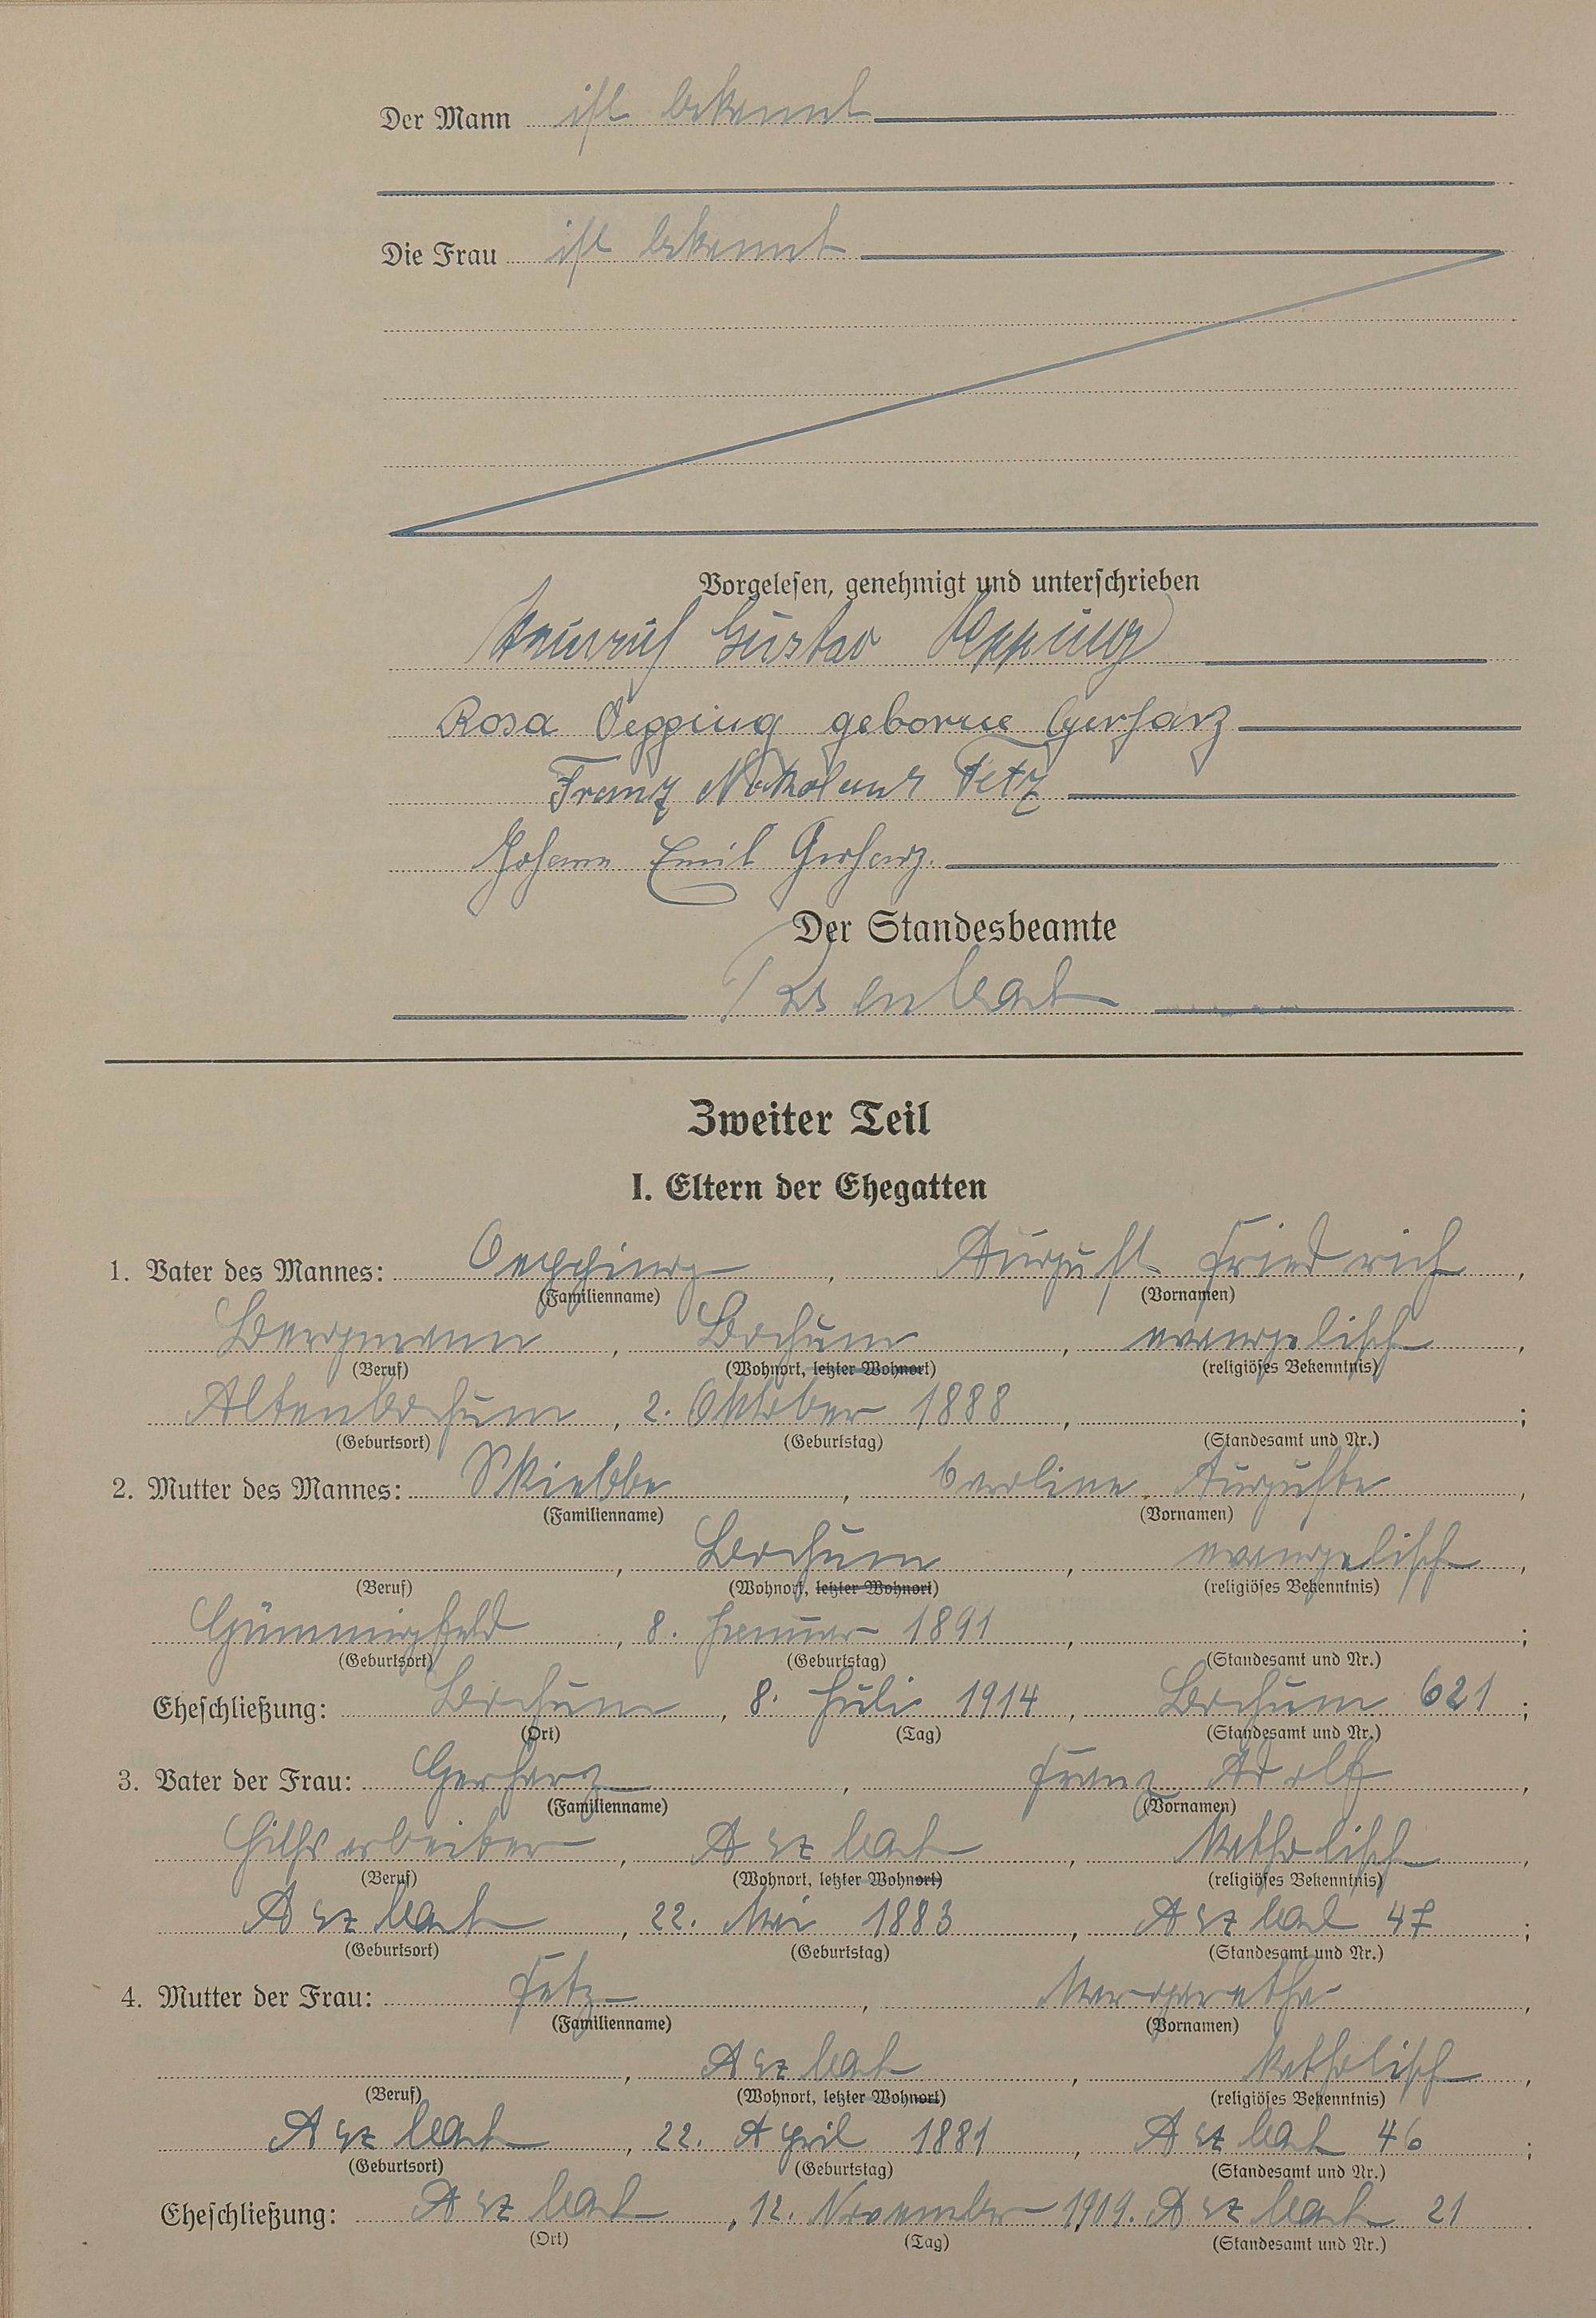 Der Mann ist bekannt
Die Frau ist bekannt
Vorgelesen, genehmigt und unterschrieben
Heinrich Gustav Oepping
Rosa Oepping geborne Gerharz
Franz Nikolaus Fetz
Johann Emil Gerharz.
Der Standesbeamte
Zweiter Teil
I. Eltern der Ehegatten
1. Vater des Mannes: Oepping, August Friedrich,
(Familienname) (Vornamen)
Bergmann, Bochum, evangelisch,
(Beruf) (Wohnort, letzter Wohnort) (religiöses Bekenntnis)
Altenbochum, 2. Oktober 1888,;
(Geburtsort) (Geburtstag) (Standesamt und Nr.)
2. Mutter des Mannes: Skiebbe, Caroline Auguste,
(Familienname) (Vornamen)
, Bochum, evangelisch,
(Beruf) (Wohnort, letzter Wohnort) (religiöses Bekenntnis)
Günnigfeld, 8. Januar 1891,;
(Geburtsort) (Geburtstag) (Standesamt und Nr.)
Eheschließung: Bochum, 8. Juli 1914, Bochum 621;
(Ort) (Tag) (Standesamt und Nr.)
3. Vater der Frau: Gerharz, Franz Adolf,
(Familienname) (Vornamen)
Hilfsarbeiter, Arzbach, katholisch,
(Beruf) (Wohnort, letzter Wohnort) (religiöses Bekenntnis)
Arzbach, 22. Mai 1883, Arzbach 47;
(Geburtsort) (Geburtstag) (Standesamt und Nr.)
4. Mutter der Frau: Fetz, Margarethe,
(Familienname) (Vornamen)
, Arzbach, katholisch,
(Beruf) (Wohnort, letzter Wohnort) (religiöses Bekenntnis)
Arzbach, 22. April 1881, Arzbach 46;
(Geburtsort) (Geburtstag) (Standesamt und Nr.)
Eheschließung: Arzbach, 12. November 1909. Arzbach 21.
(Ort) (Tag) (Standesamt und Nr.)